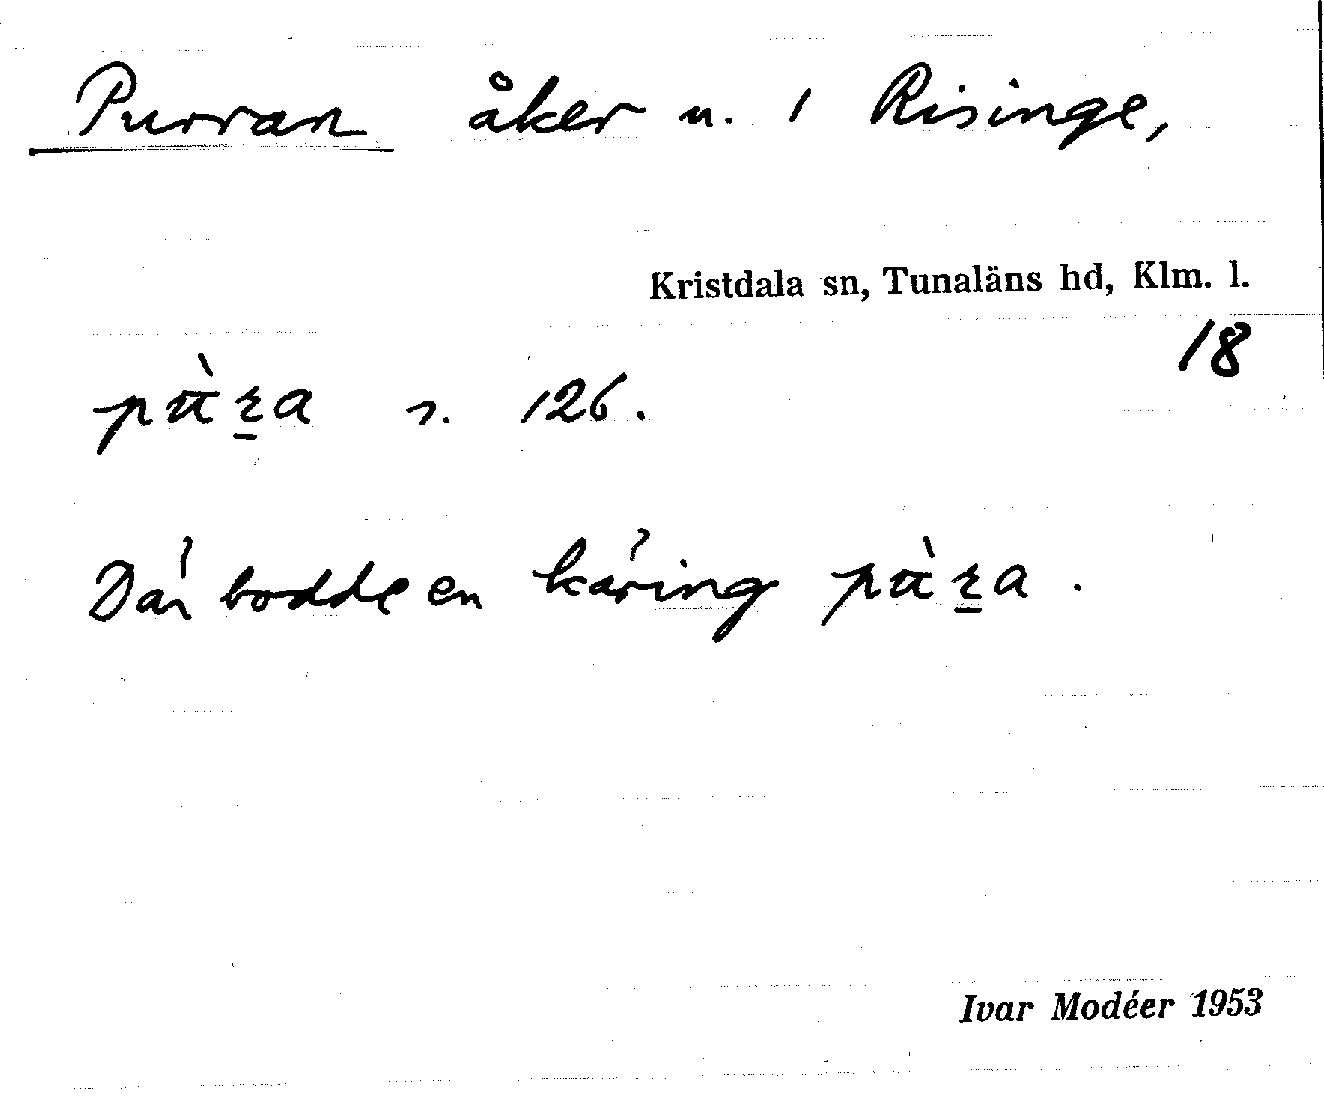 Purran åker u. 1 Risinge,
Kristdala sn, Tunaläns hd, Klm. l.
18
126.
Där bodde en käring
Ivar Modéer 1953